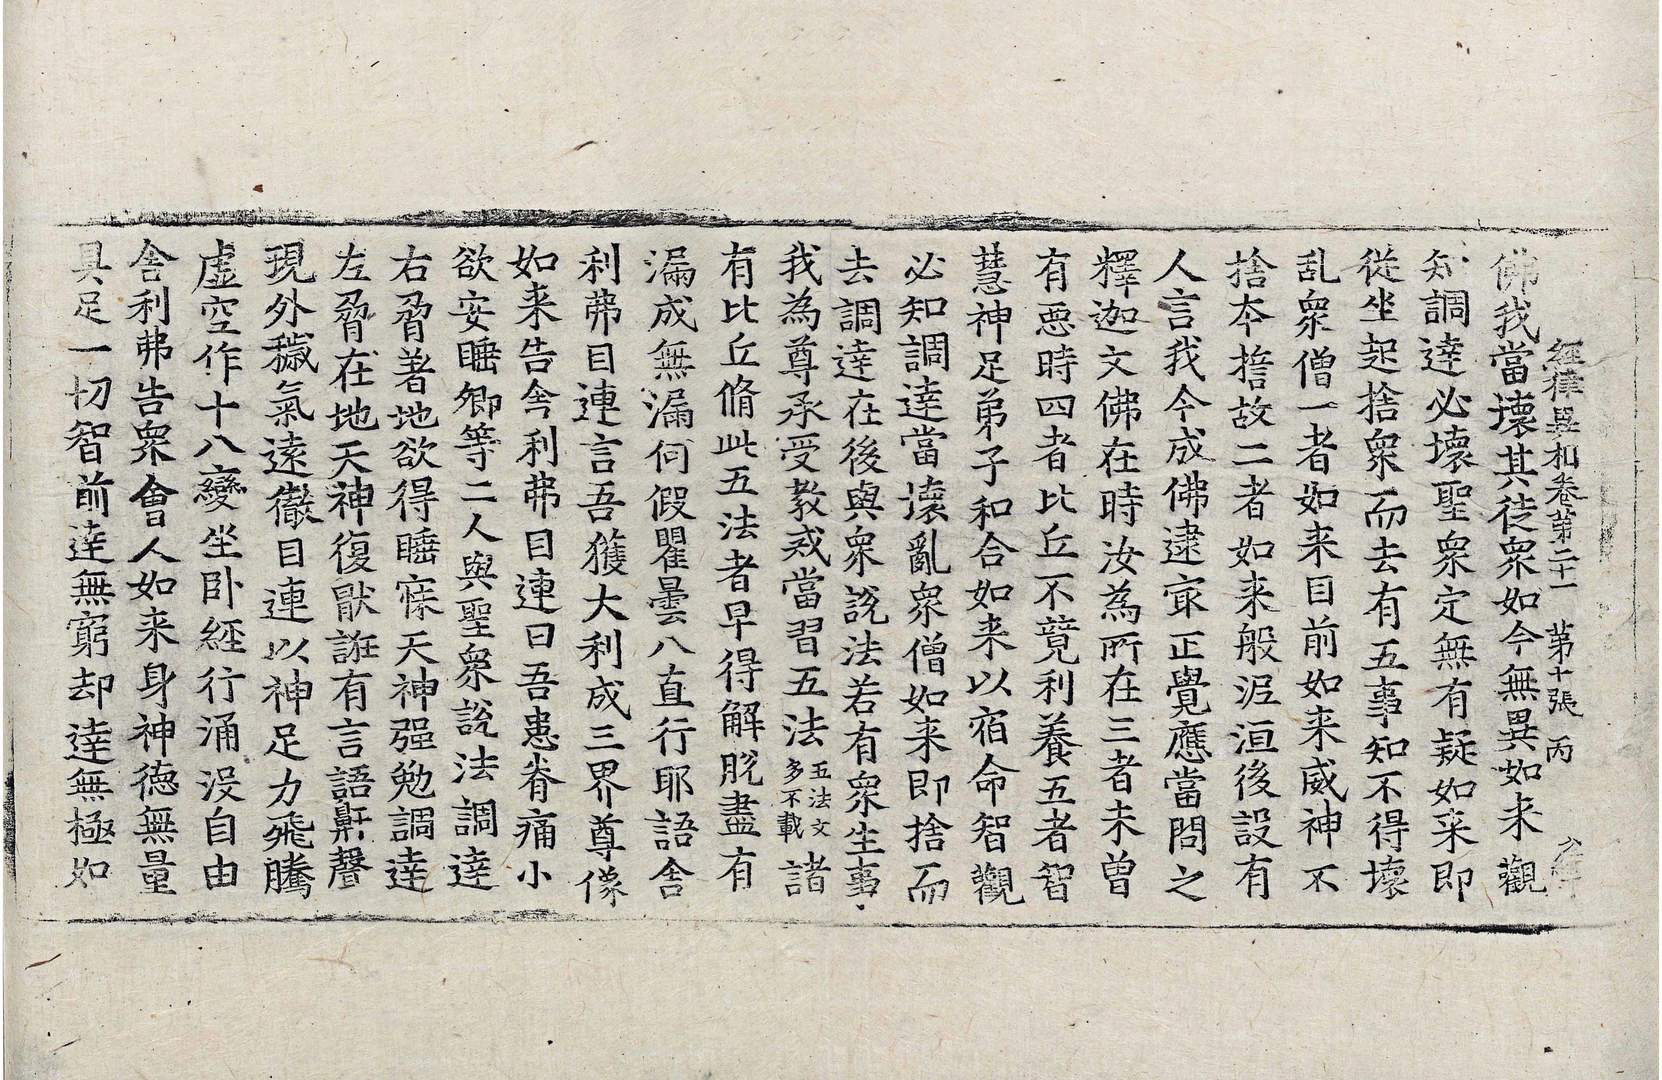 經律異相卷第二十一 第十張 丙
佛我當壞其徒衆如今無異如来觀
知調達必壞聖衆定無有疑如来即
從坐起捨衆而去有五事知不得壞
乱衆僧一者如来目前如来威神不
捨本揩故二者如来般涅洹後設有
人言我今成佛逮㝡正覺應當問之
釋迦文佛在時汝為所在三者未曾
有惡時四者比丘不竟利養五者智
慧神足弟子和合如来以宿命智觀
必知調達當壞亂衆僧如来即捨而
去調達在後與衆說法若有衆生事
我為尊承受教戒當習五法五法文多不載諸
有比丘脩此五法者早得解脫盡有
漏成無漏何假瞿曇八直行耶語舍
利弗目連言吾獲大利成三界尊像
如来告舍利弗目連曰吾患脊痛小
欲安睡卿等二人與聖衆說法調達
右脅著地欲得睡寐天神强勉調達
左脅在地天神復厭誑有言語鼾聲
現外穢氣遠徹目連以神足力飛騰
虛空作十八變坐卧經行涌沒自由
舍利弗告衆會人如来身神德無量
具足一切智前達無窮却達無極如